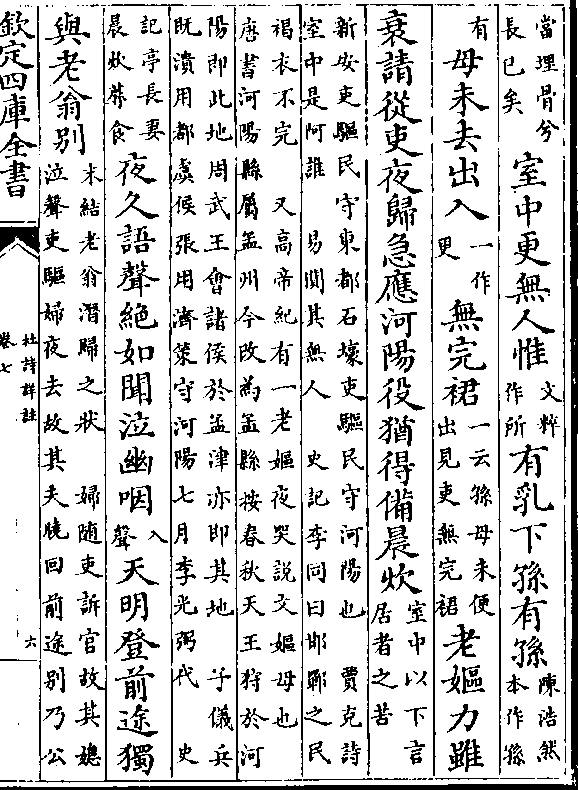 當埋骨兮
長已矣
室中更無人惟
文粹
作所
有乳下孫有孫
陳浩然
本作孫
有
母未去出入
一作
更
無完裙
一云孫母未便
出見吏無完裙
老嫗力雖
衰請從吏夜歸急應河陽役猶得備晨炊
室中以下言
居者之苦
新安吏驅民守東都石壕吏驅民守河陽也 賈克詩
室中是阿誰 易闃其無人 史記李同曰邯鄲之民
褐衣不完 又高帝紀有一老嫗夜哭説文嫗母也
唐書河陽縣屬孟州今改為孟縣按春秋天王狩於河
陽即此地周武王會諸侯於孟津亦即其地 子儀兵
既潰用都虞候張用濟策守河陽七月李光弼代 史
記亭長妻
晨炊蓐食
夜久語聲絶如聞泣幽咽
入
聲
天明登前途獨
與老翁别
末結老翁潛歸之狀 婦隨吏訴官故其媳
泣聲吏驅婦夜去故其夫曉回前途别乃公
欽定四庫全書
杜詩詳註
卷七
六